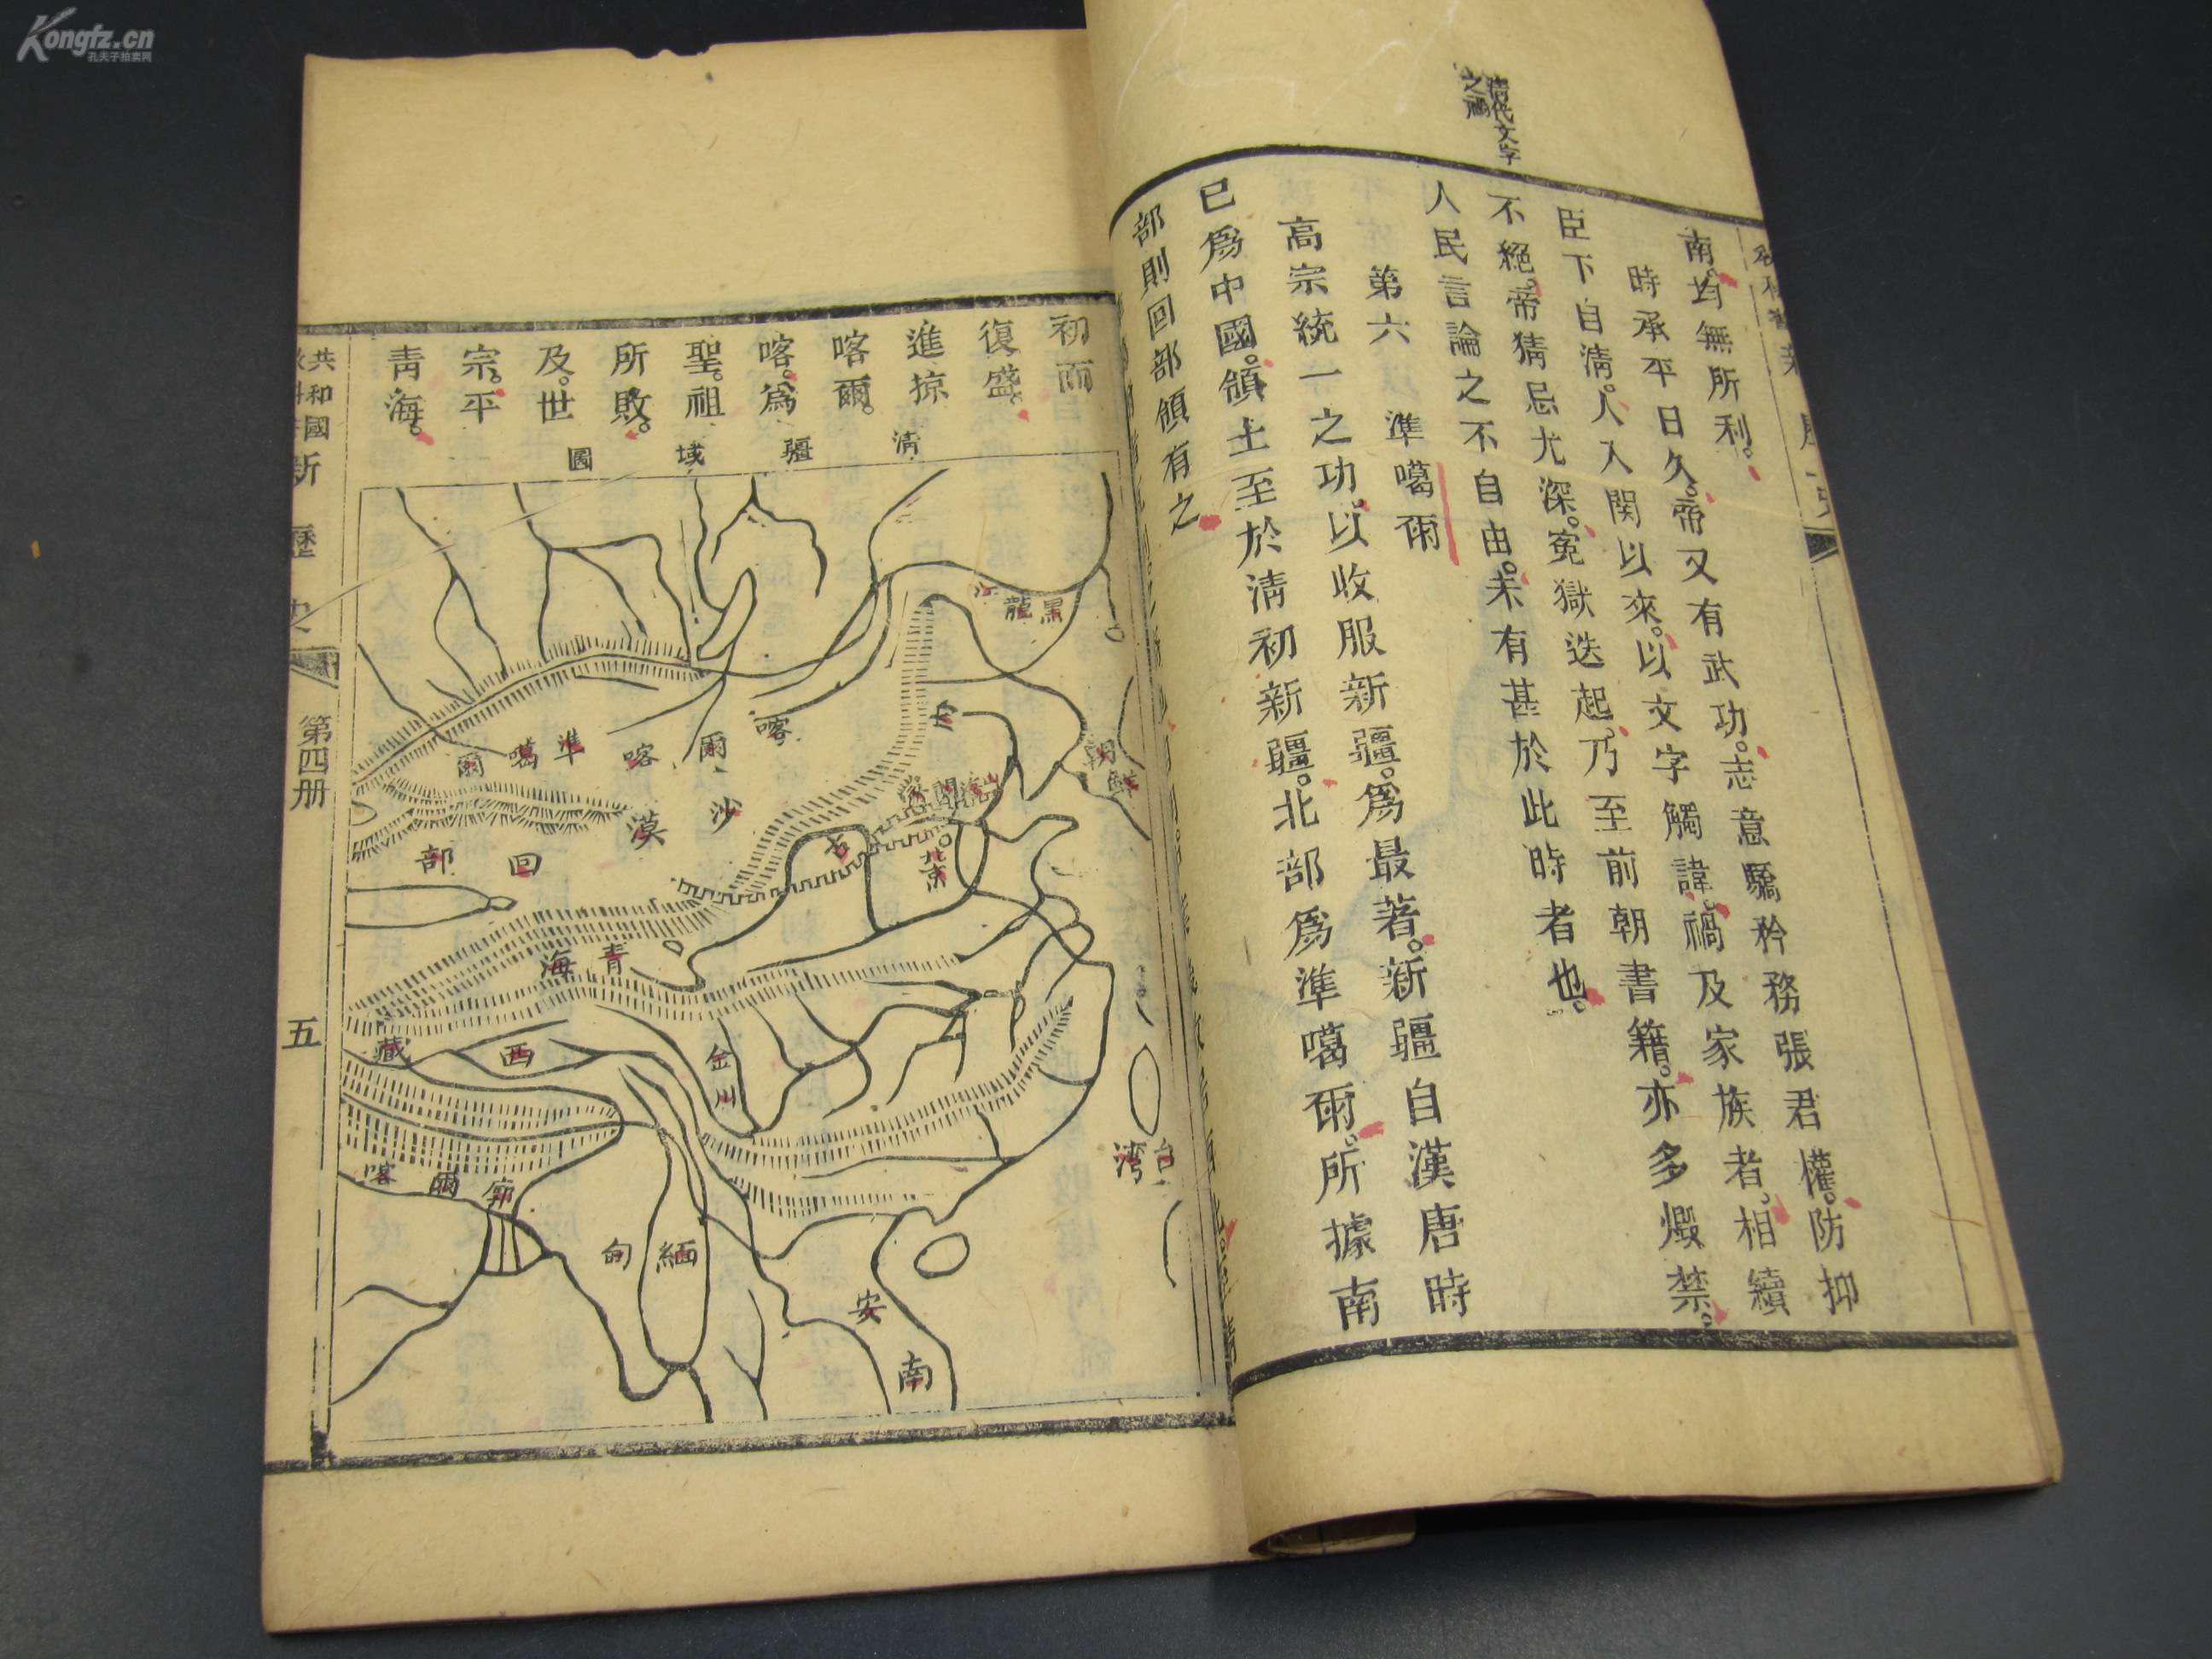 清代文字
之禍
南。均無所利。
時承平日久。帝又有武功。志意驕矜務張君權。防抑
臣下自清。人入関以來。以文字觸諱。禍及家族者。相續
不絕。帝猜忌尤深。冤獄迭起。乃至前朝書籍。亦多燬禁。
人民言論之不自由。未有甚於此時者也。
第六 準噶爾
高宗統一之功。以收服新疆。爲最著。新疆自漢唐時
已爲中國。領土至於清初新疆。北部爲準噶爾。所據南
部則回部領有之
初而
復盛。
進掠
喀爾。
喀。爲
聖。祖
所敗。
及。世
宗。平
青海。
清疆域圖
黑龍江
朝鮮
喀爾喀
準噶爾
沙漠
山海関
北京
回部
青海
西藏
金川
台灣
廓爾喀
緬甸
安南
共和國
新歷史
第四册
五
Kongfz.cn
孔夫子拍卖网